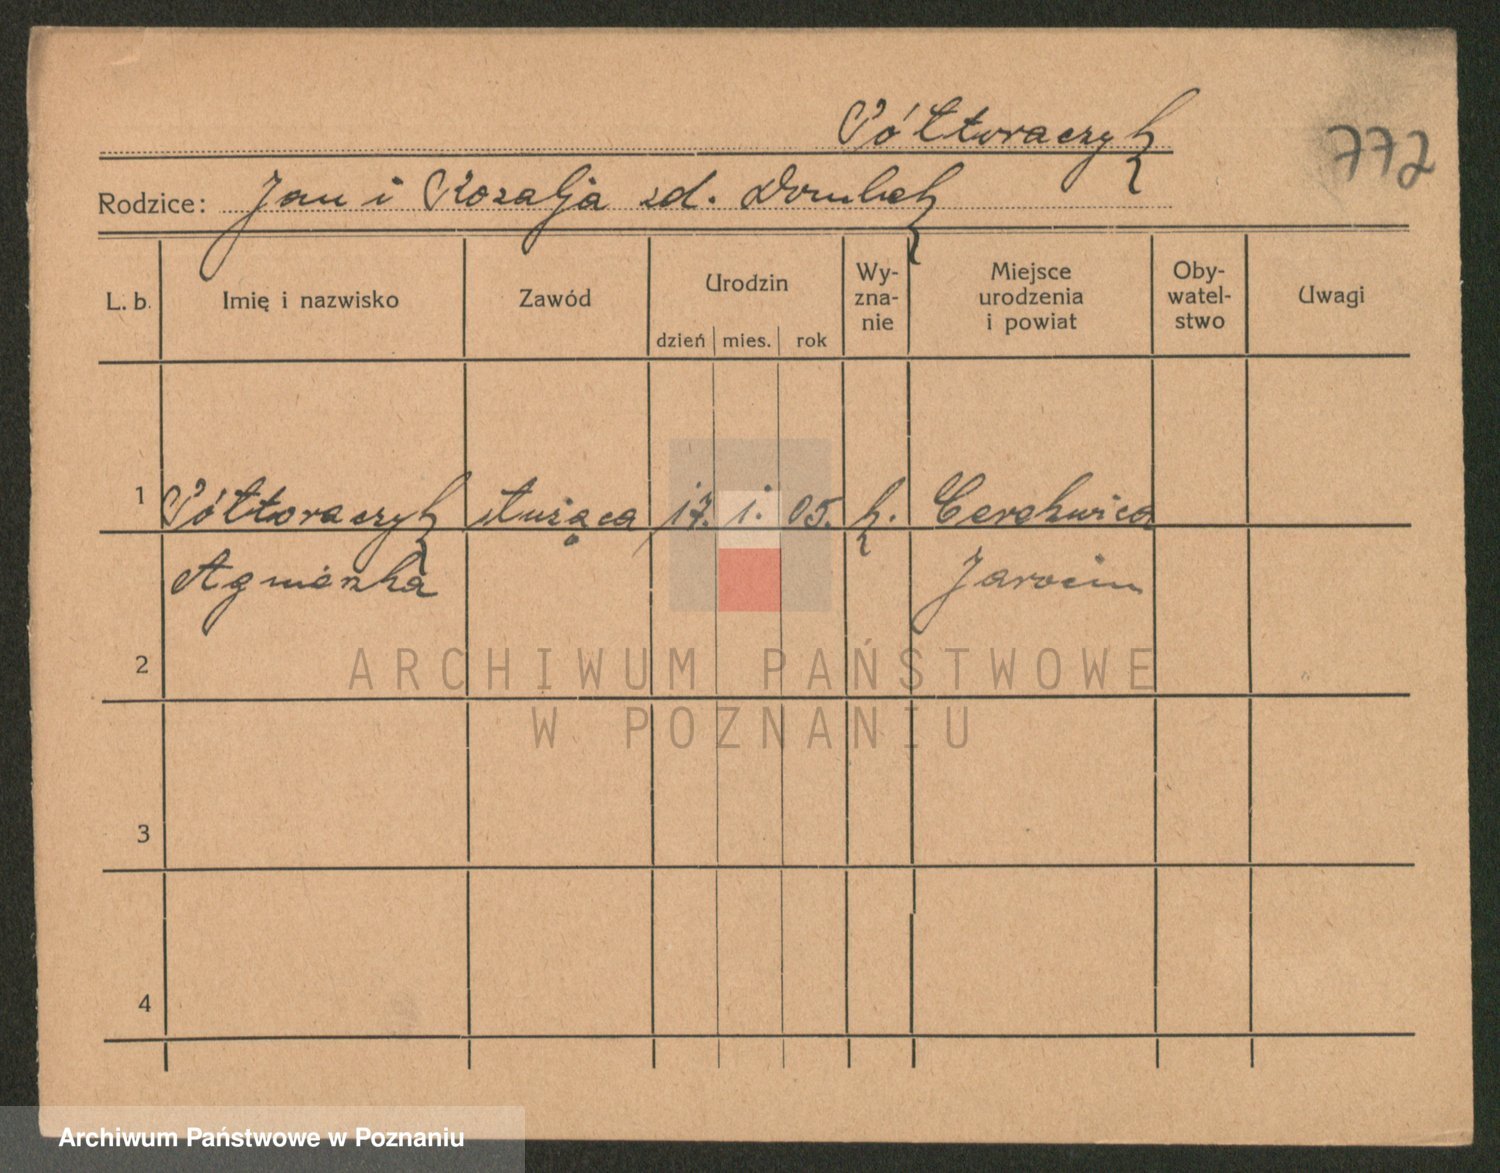 Półtoraczyk
772
Rodzice: Jan i Rozalja zd. Dombek
L. b.
Imię i nazwisko
Zawód
Urodzin
dzień mies. rok
Wy-
zna-
nie
Miejsce
urodzenia
i powiat
Oby-
watel-
stwo
Uwagi
1 Półtoraczyk służąca 17. 1. 05. k. Cerekwica
Agnieszka Jarocin
2
3
4
ARCHIWUM PAŃSTWOWE
W POZNANIU
Archiwum Państwowe w Poznaniu